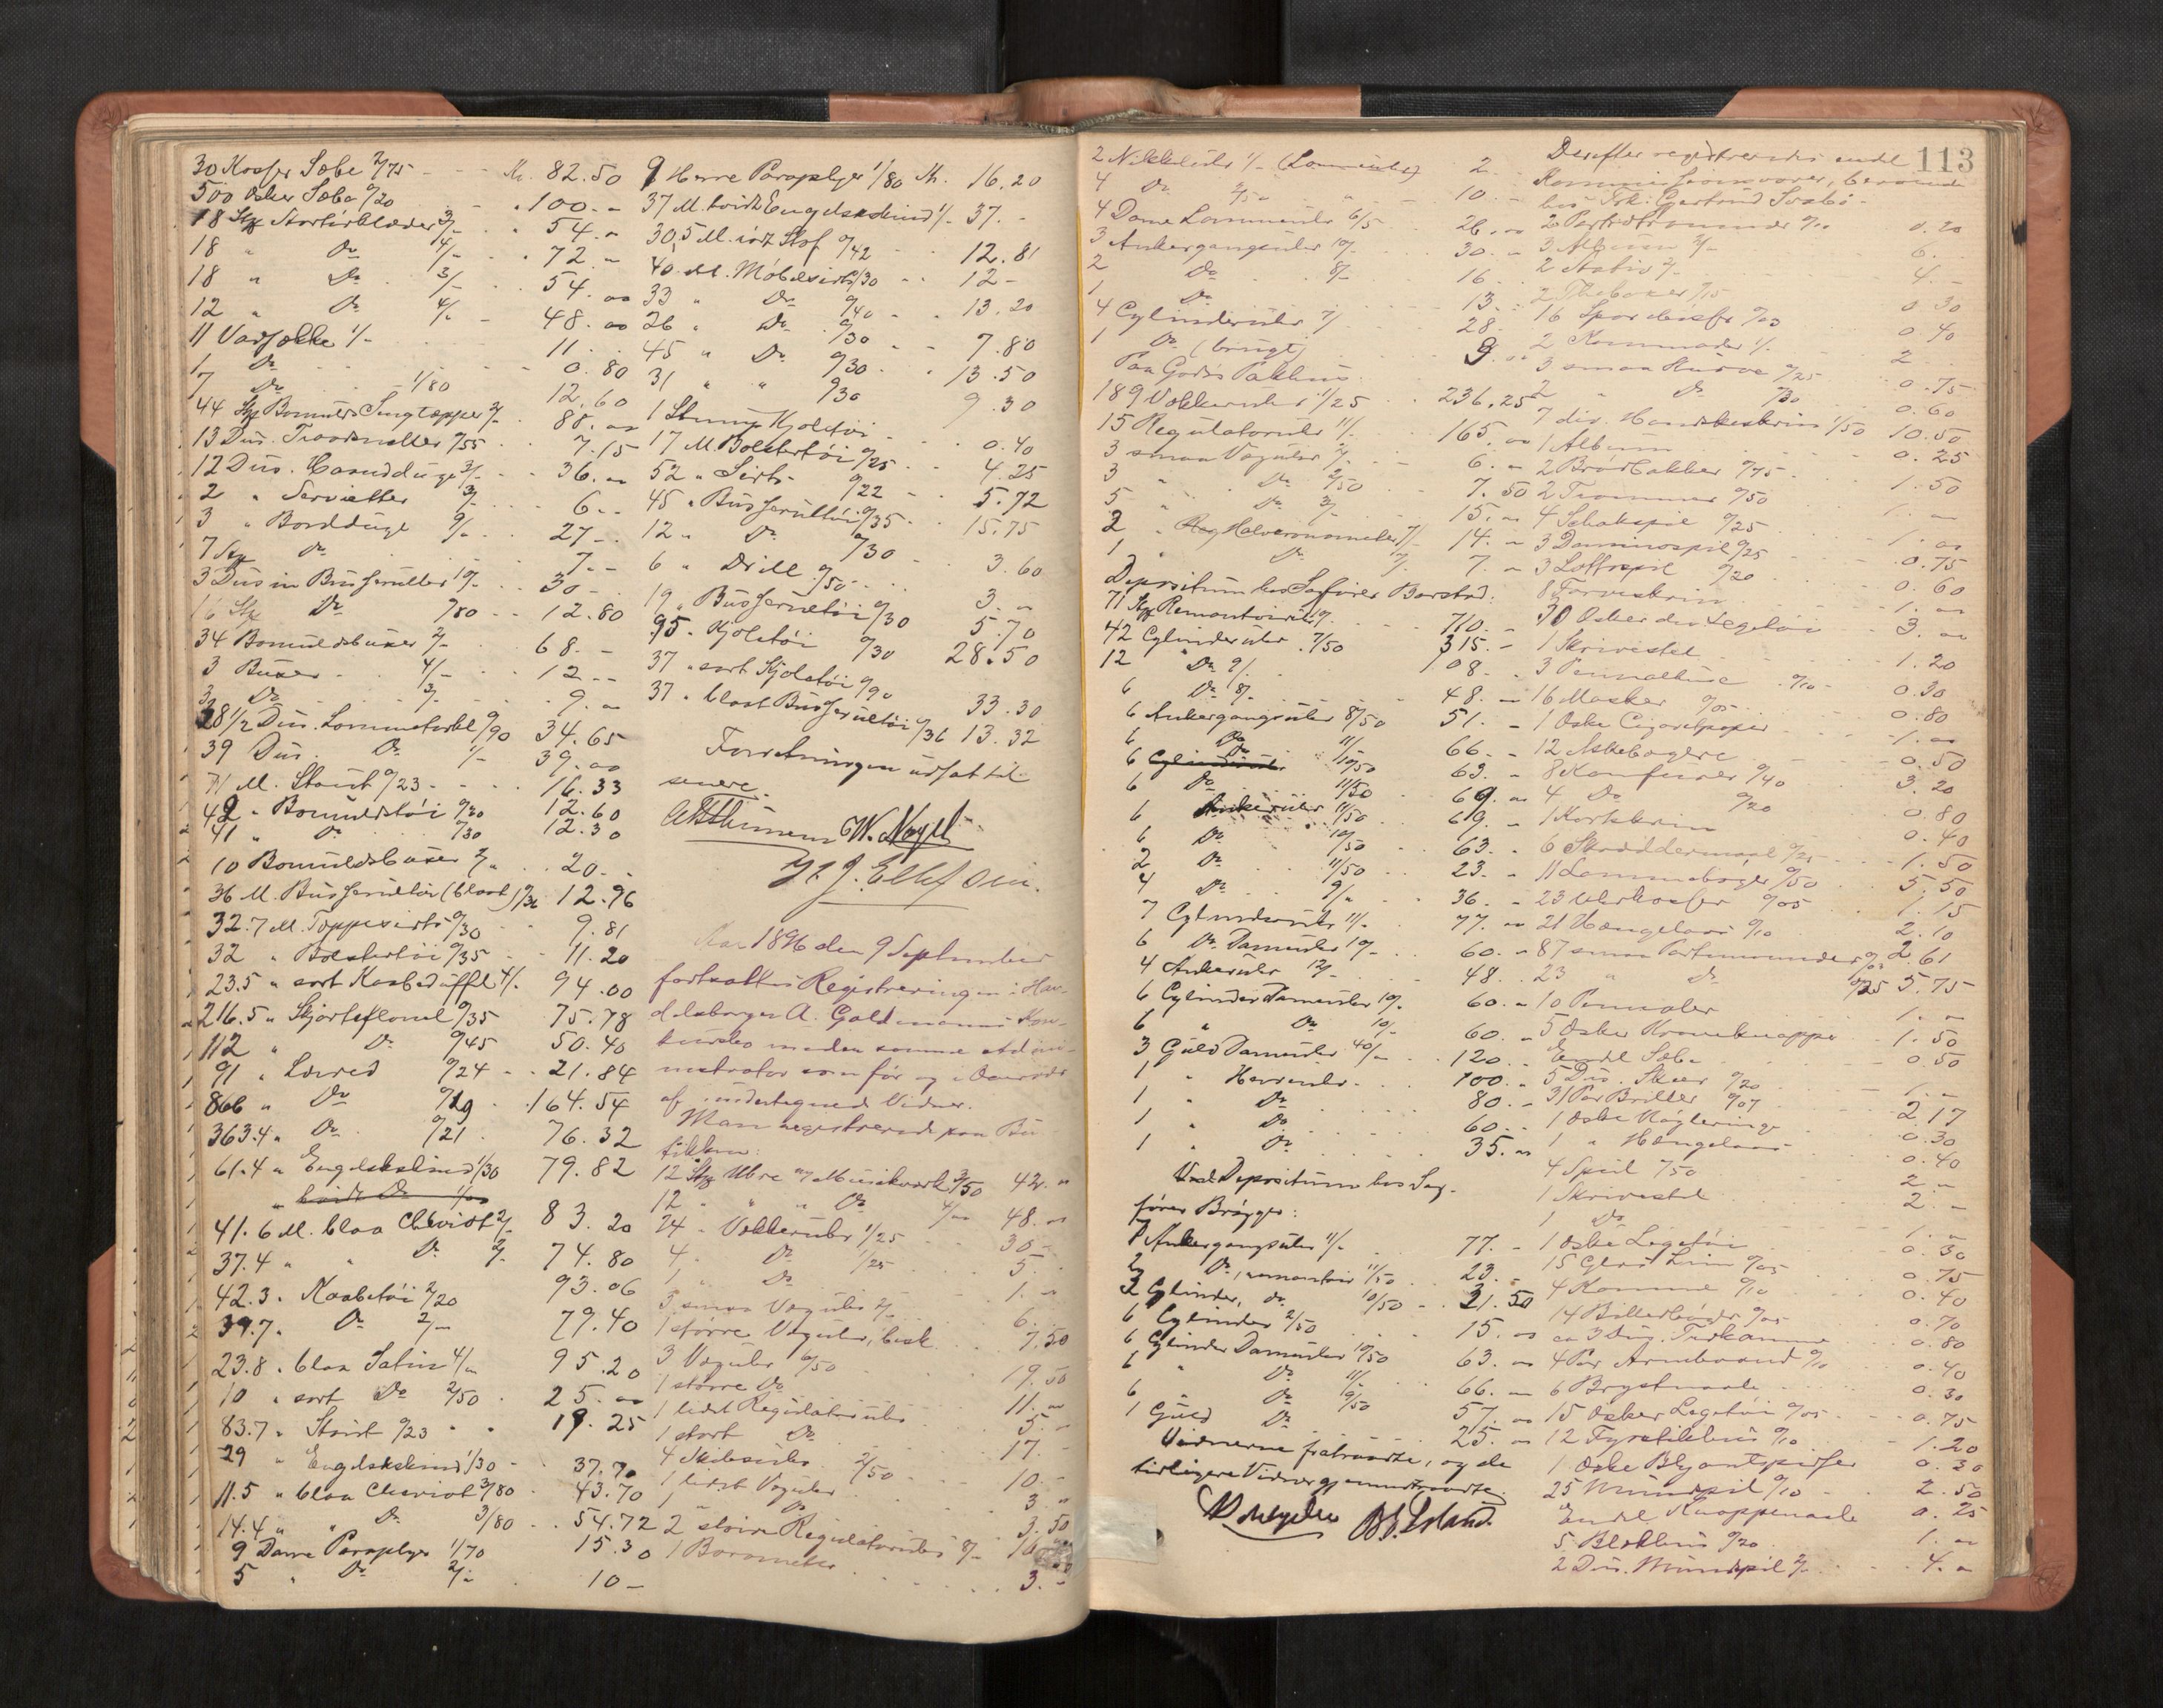 30 Kasser Sæbe 2/75 Kr. 82.50
500 Æsker Sæbe 0/20 100.-
18 Stk Skortørklæder 3/- 54.-
18 " Do 4/- 72.-
18 " Do 3/- 54.-
12 " Do 4/- 48.-
11 1/- 11.
1 Do 0.80
7 Do 1/80 12.60
44 Stk Bomulds Sengtæpper 2/- 88.-
13 Dus. 0/55 7.15
12 Dus. 3/- 36.-
2 " Servietter 3/- 6.-
3 " Bordduge 9/- 27.-
7 Stk Do 7.-
3 Dusin Busseruller 10/- 30.-
16 Stk Do 0/80 12.80
34 Bomuldsbuxer 2/- 68.-
3 Buxer 4/- 12.-
3 Do 3/- 9.-
38 1/2 Dus. Lommetørkl 0/90 34.65
39 Dus Do 1/- 39.-
71 M. Stout 0/23 16.33
42 " Bomuldstøi 0/30 12.60
41 " Do 0/30 12.30
10 Bomuldsbuxer 2/- 20.-
36 M. Busserultøi (blaat) 0/36 12.96
32.7 M. Tæppesirts 0/30 9.81
32 " Bolstertøi 0/35 11.20
23.5 " sort Kaabedüffel 4/- 94.00
216.5 " Skjorteflonel 0/35 75.78
112 " Do 0/45 50.40
91 " Lærred 0/24 21.84
866 " Do 0/19 164.54
363.4 " Do 0/21 76.32
61.4 " Engelskskind 1/30 79.82
" hvidt Do 1/00
41.6 M. blaa Cheviot 2/- 83.20
37.4 " " Do 2/- 74.80
42.3 " Kaabetøi 2/20 93.06
39.7 " Do 2/- 79.40
23.8 " blaa Satin 4/- 95.20
10 " sort Do 2/50 25.-
83.7 " Stout 0/23 19.25
29 " Engelskskind 1/30 37.70
11.5 " blaa Cheviot 3/80 43.70
14.4 " " Do 3/80 54.72
9 Dame Paraplyer 1/70 15.30
5 " Do 2/- 10-
9 Herre Paraplyer 1/80 Kr. 16.20
37 M. hvidt Engelskskind 1/- 37.-
30,5 M. rødt Stof 0/42 12.81
40 M. Møbelsirts 0/30 12-
33 " Do 0/40 13.20
26 " Do 0/30 7.80
45 " Do 0/30 13.50
31 " " 0/30 9.30
1 Stump Kjoletøi 0.40
17 M. Bolstertøi 0/25 4.25
52 " Sirts 0/22 5.72
45 " Busserultøi 0/35 15.75
12 " Do 0/30 3.60
6 " Drill 0/50 3.-
19 " Busserultøi 0/30 5.70
95 " Kjoletøi 0/30 28.50
37 " sort Kjoletøi 0/90 33.30
37 " blaat Busserultøi 0/36 13.32
Forretningen udsat til
senere.
W. Nagel
Aar 1896 den 9 September
fortsattes Registreringen i Han-
delsborger A. Goldmanns Kon-
kursbo med den samme Admi-
nistrator som før og i Overvær
af undertegnede Vidner.
Man registrerede paa Bu-
tikken:
12 Stk Uhre m/ Musikværk 3/50 42.-
12 " " " Do 4/- 48.-
24 " Vækkeruhr 1/25 30-
4 " Do 1/25 5.
1 " Do 1.-
3 smaa Væguhr 2/- 6.
1 større Væguhr, besk. 7.50
3 Væguhr 6/50 19.50
1 større Do 11.-
1 lidet Regulatoruhr 5.-
1 stort Do 17.-
4 Skibsuhr 2/50 10.-
1 lidet Væguhr 3.-
1 " Do 3.50
2 større Regulatoruhr 8/- 16
1 Barometer 3.-
113
2 Nikkeluhr 1/- (Lommeuhr) 2.
4 Do 2/50 10.
4 Dame Lommeuhr 6/5 26.-
3 Ankergangsuhr 10/- 30.-
2 Do 8/- 16.
1 Do 13.
4 Cylinderuhr 7/ 28.
1 Do (brugt) 9.
Paa Gods Pakhus.
189 Vækkeruhr 1/25 236.25
15 Regulatoruhr 11/- 165.-
3 smaa Væguhr 2/- 6.-
3 " Do 2/50 7.50
5 " Do 3/- 15.-
2 Halvkronometer 7/- 14.-
1 " Do 7/- 7.-
Depositum hos Sagfører Barstad:
71 Stk Remontoiruhr 10/- 710.-
42 Cylinderuhr 7/50 315.-
12 " Do 9/- 108.-
6 Do 8/- 48.-
6 Ankergangsuhr 8/50 51.-
6 Do 11/- 66.-
6 Cylinderuhr Do 10/50 63.-
6 Do 11/50 69.-
6 Ankeruhr 11/50 69.-
6 Do 10/50 63.-
2 Do 11/50 23.-
4 Do 9/- 36.-
7 Cylinderuhr 11/- 77.-
6 Do Dameuhr 10/- 60.-
4 Ankeruhr 12/- 48.
6 Cylinder Dameuhr 10/- 60.-
6 " Do 10/- 60.-
3 Guld Dameuhr 40/- 120.
1 " Herreuhr 100.-
1 " Do 80.-
1 " Do 60.-
1 " Do 35.-
Ved Depositum hos Sag-
fører Brøgger:
7 Ankergangsuhr 11/- 77.-
2 Do, remontoir 11/50 23.-
3 Cylinder, do. 10/50 31.50
6 Cylinder 2/50 15.-
6 Cylinder Dameuhr 10/50 63.-
6 " Do 11/- 66.-
6 Do 9/50 57.-
1 Guld Do 25.-
Vidnerne fratraadte, og de
tidligere Vidner gjenindtraadte.
Derefter registreredes endel
Kommissionsvarer, beroende
hos Frk. Gjertrud Svabø.
2 Portrætrammer 0/10 0.20
3 Album 2/- 6.
2 Stativ 2/- 4.-
2 Thebakker 0/15 0.30
16 0.40
2 Kommoder 1/- 2
3 smaa Kurve 0/25 0.75
2 " Do 0/30 0.60
7 div. Handskeskrin 1/50 10.50
1 Album 0.25
2 Brødbakker 0/75 1.50
2 Trommer 0/50 1.-
4 Schakspil 0/25 1.-
3 Dominospil 0/25 0.75
3 Lottospil 0/20 0.60
8 Farveskrin 1.-
30 Æsker div Legetøi 3.-
1 Skrivestel 1.20
3 Pennalhuse 0/10 0.30
16 Masker 0/05 0.80
1 Æske Cigaretpapir 1.-
12 Askebægere 0.50
8 Komfurer 0/40 3.20
4 Do 0/20 0.80
1 Kortskrin 0.40
6 Skræddermaal 0/25 1.50
11 Lommebøger 0/50 5.50
23 0/05 1.15
21 Hængelaas 0/10 2.10
87 smaa Portemonnæer 0/03 2.61
23 " Do 0/25 5.75
10 Pennaler 1.-
5 Æsker Kraveknapper 1.50
Endel Sæbe 0.50
5 Dus. Skeer 0/20 1.-
31 Par Briller 0/07 2.17
1 Æske Nøgleringe 0.30
1 " Hængelaas 0.40
4 Speil 0/50 2.-
1 Skrivestel 2.-
1 Do 1.-
1 Æske Legetøi 0.30
15 Glas Lim 0/05 0.75
4 Kamme 0/10 0.40
14 Billedbøger 0/05 0.70
ca 3 Dus. 0.80
4 Par Armbaand 0/10 0.40
6 Brystnaale 0.30
15 Æsker Legetøi 0/05 0.75
12 0/10 1.20
1 Æske Blyantspidser 0.30
25 Mundspil 0/10 2.50
Endel Knappenaale 0.25
5 Blækhus 0/20 1.-
2 Dus. Mundspil 2/- 4.-